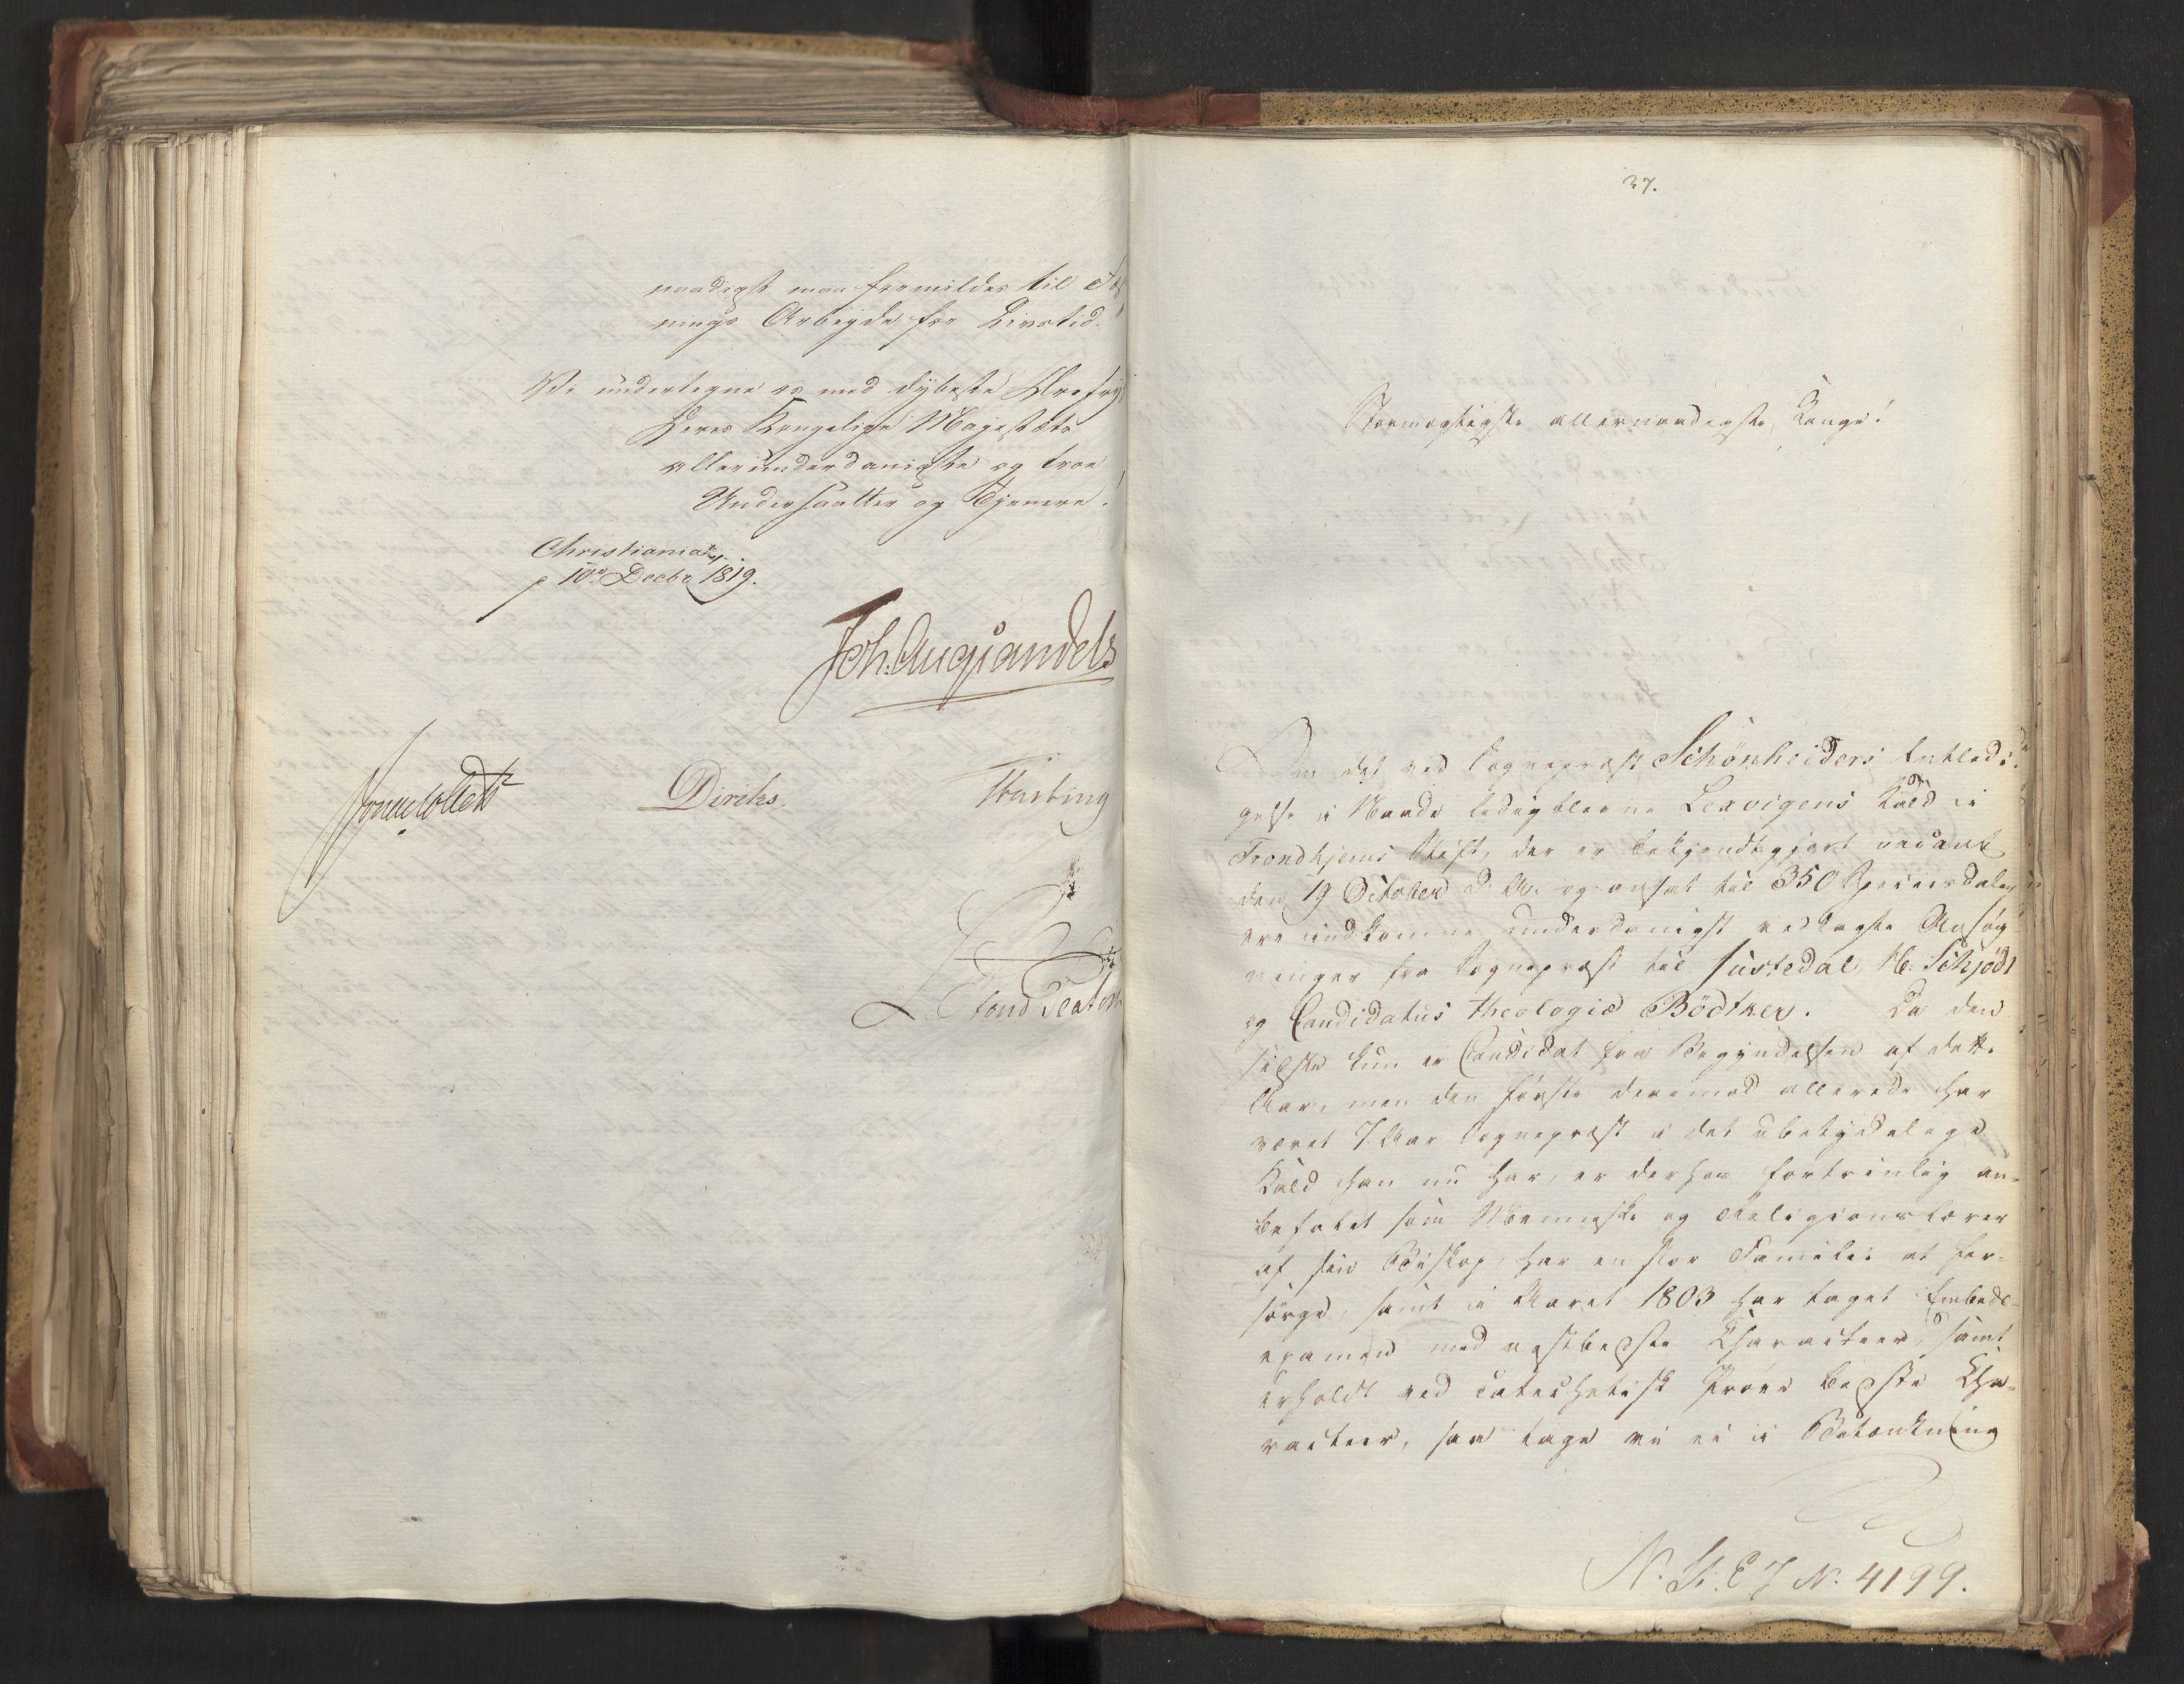 naadigst maa formildes til Fæst
nings Arbeyde for Livstid.
Vi undertegne os med dybeste Ærefrygt
Deres Kongelige Majestæts
allerunderdanigste og troe
Undersaatter og Tjenere.
Christiania
10de Decbr 1819.
Joh. Aug. Sandels
Jonas Collett
Diriks.
Hurting
37.
Stormægtigste allernaadigste Konge!
Om det ved Sognepræst Schönheiders Entledi¬
gelse i Naade ledigblevne Lexvigens Kald i
Trondhjems Stift, der er bekjendtgjort vacant
den 19 October d. A. og ansat til 350 Speciesdaler
ere indkomne underdanigst vedlagte Ansøg¬
ninger fra Sognepræst til Justedal N. Schjödt
og Candidatus theologiæ Bödtker. Da den
sidste kun er Candidat fra Begyndelsen af dette
Aar, men den første deremod allerede har
været 7 Aar Sognepræst i det ubetydelige
Kald han nu har, er derhos fortrinlig an¬
befalet som Menneske og Religionslærer
af sin Biskop, har en stor Familie at for¬
sörge, samt i Aaret 1803 har taget Embeds¬
examen med næstbedste Characteer, samt
erholdt ved catechetisk Pröve bedste Cha¬
racteer, saa tage vi ei i Betænkning
N. St. E J N. 4199.